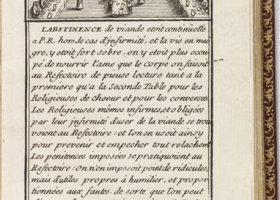 LABSTINENCE de viande etoit continuelle
a P.R. hors le cas d'infirmité, et la vie en mai
gre, y etoit fort sobre, on y etoit plus occu
pé de nourrir l'ame que le corps on faisoit
au Refectoire de pieuse lecture tant a la
premiere qu'a la Seconde Table pour les
Religieuses de choeur et pour les converses.
Les Religieuses mêmes infirmes, et obligées
par leur infirmité d'user de la viande se trou
voient au Refectoire: et l'on en usoit ainsy
pour prevenir et empecher tout relachem.
Les penitences imposées se pratiquoient au
Refectoire. On n'en imposoit point de ridicules,
mais d'utiles propres à humilier, et propor
tionnées aux fautes de sorte que l'on peut